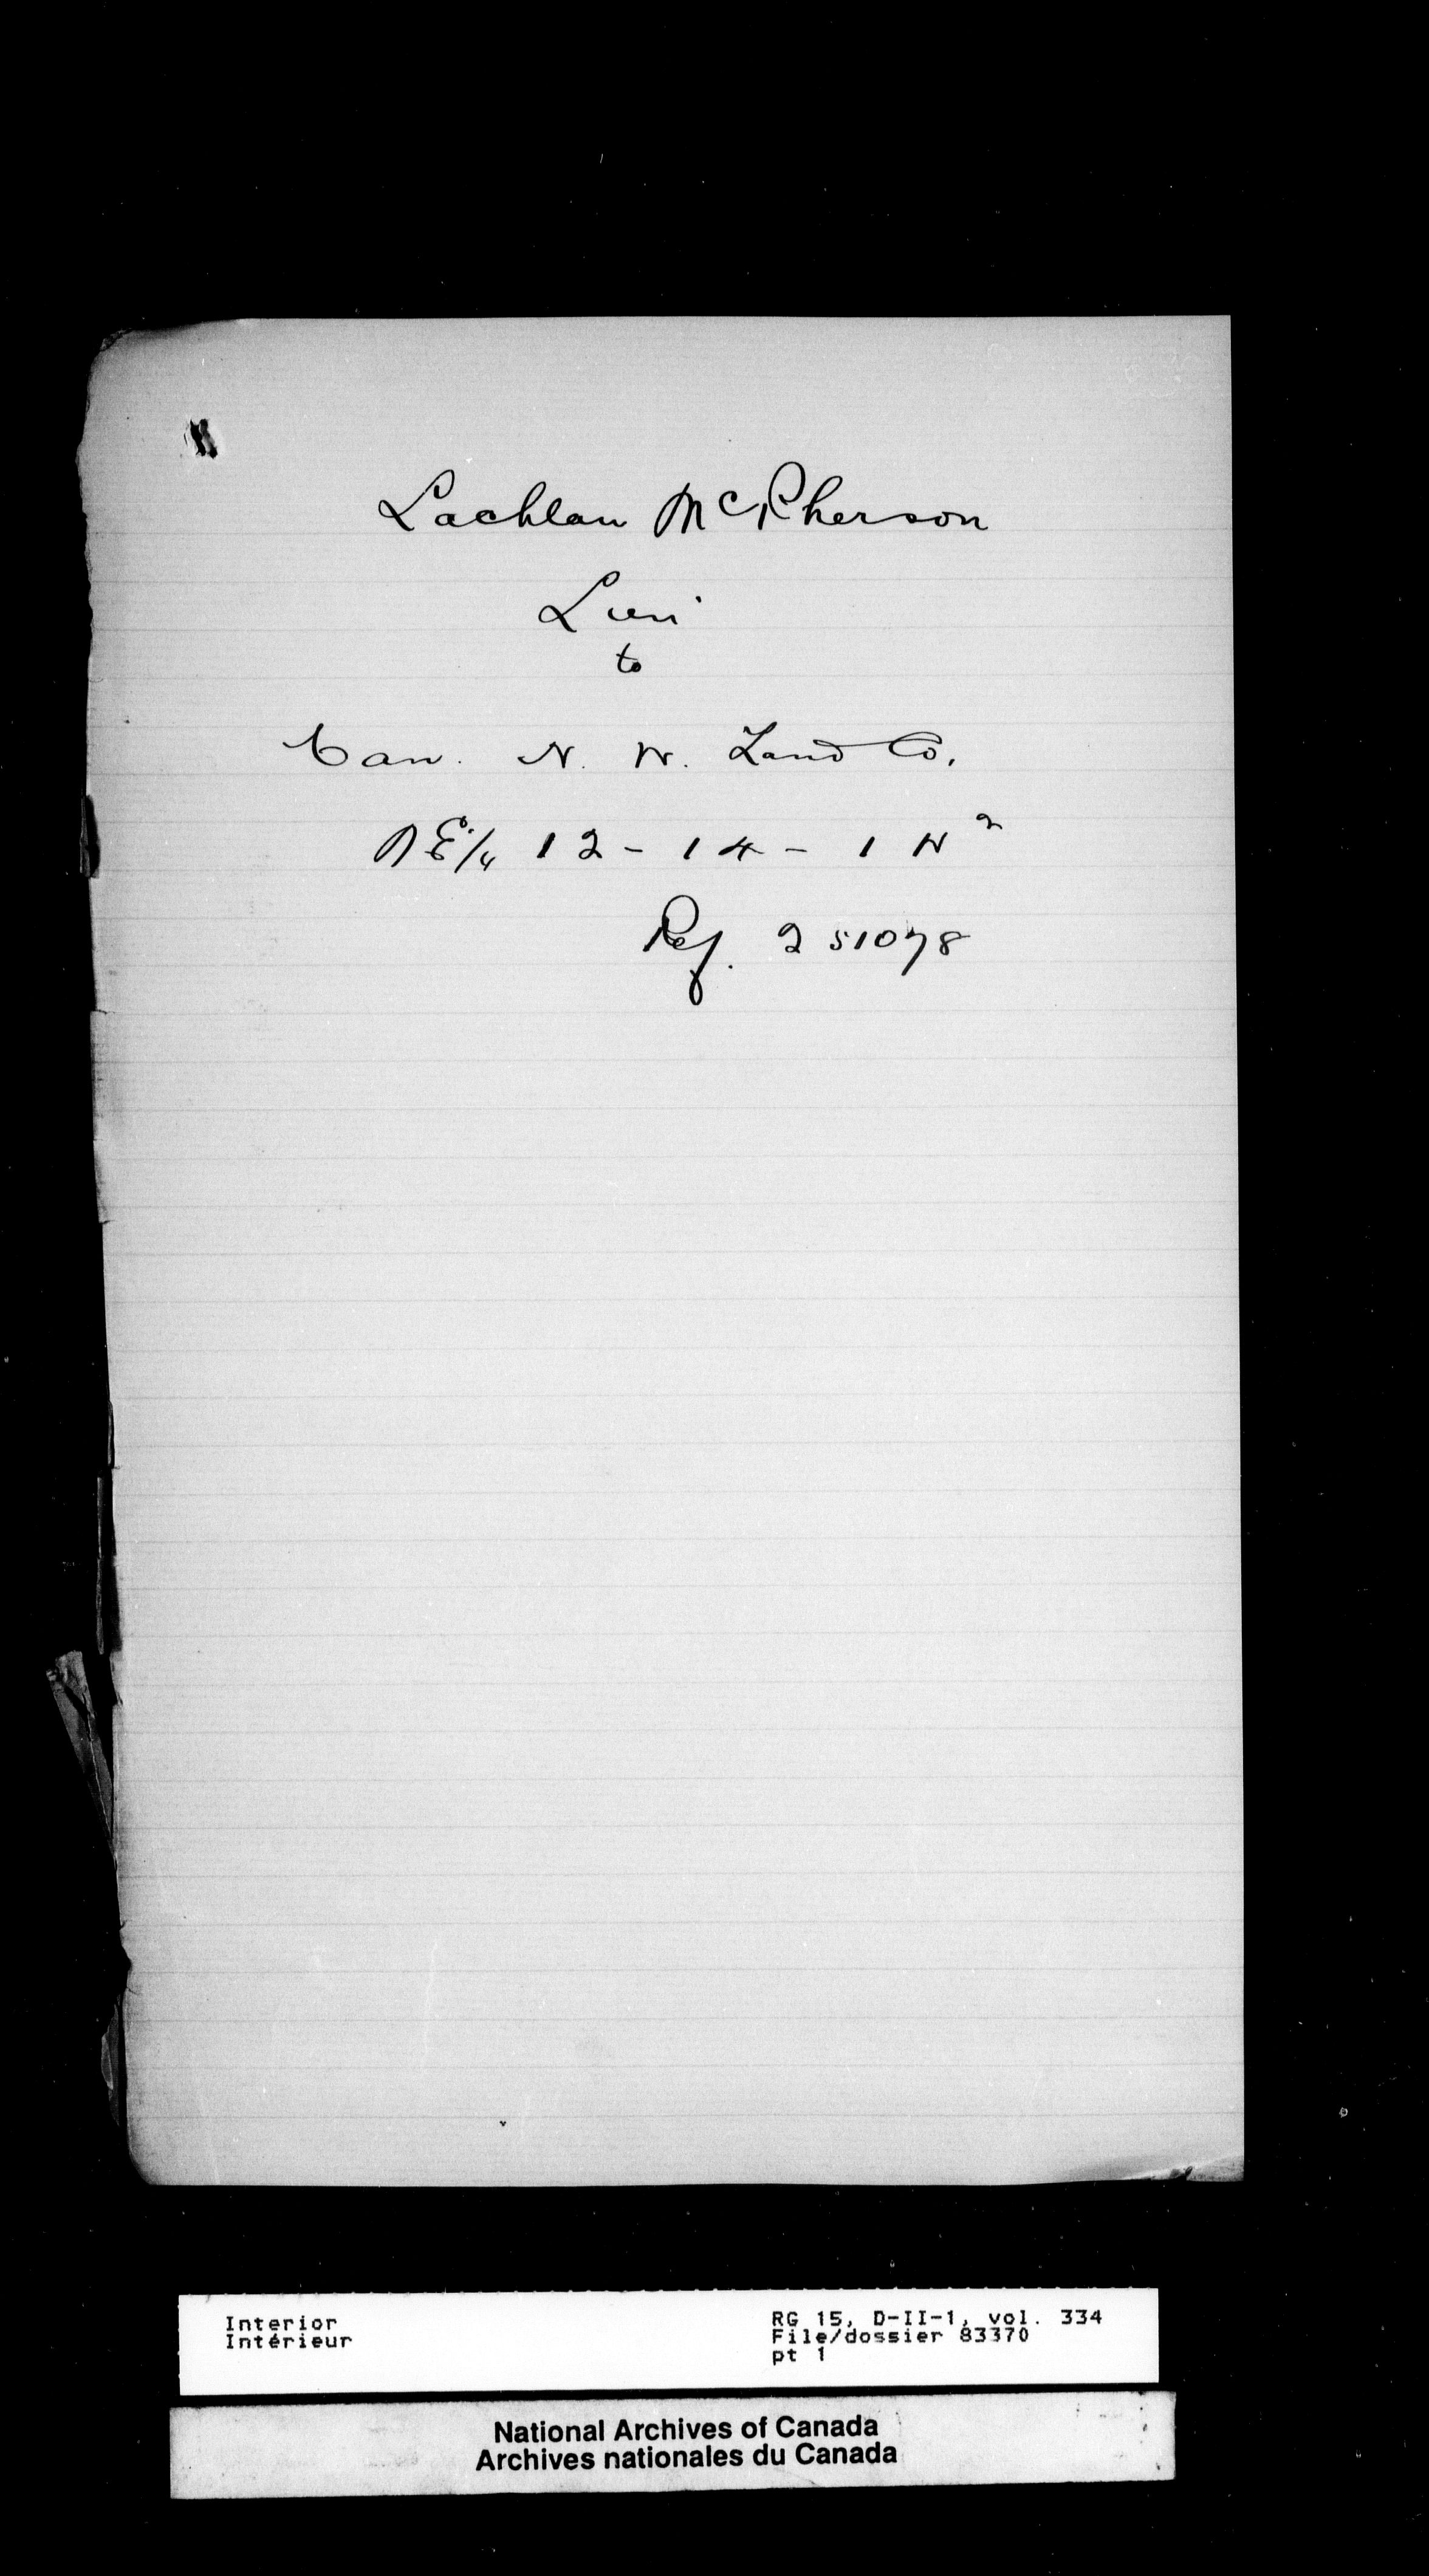 Lachlan McPherson
Lien
to
Can. N. W. Land Co.
E 1/4 12 - 14 - 1 W 2
Ref. 251078
Interior
Intérieur
RG 15, D-II-1, vol. 334
File/dossier 83370
pt 1
National Archives of Canada
Archives nationales du Canada